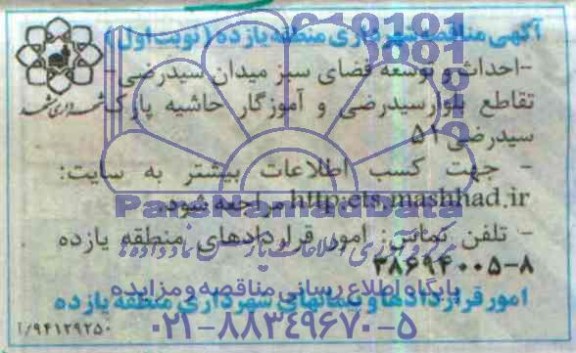 آگهی مناقصه شهرداری منطقه یازده (نوبت اول)
-احداث و توسعه فضای سبز میدان سیدرضی-
تقاطع بلوار سیدرضی و آموزگار حاشیه پارک
سیدرضی ۵۱
شهرداری مشهد
- جهت کسب اطلاعات بیشتر به سایت:
http:ets.mashhad.ir مراجعه شود.
ParsNamadData
- تلفن تماس: امور قراردادهای منطقه یازده
مرکز فرآوری اطلاعات پارس نماد داده ها
۳۸۶۹۴۰۰۵-۸
پایگاه اطلاع رسانی مناقصه و مزایده
امور قراردادها و پیمانهای شهرداری منطقه یازده
۰۲۱-۸۸۳۴۹۶۷۰-۵
/۹۴۱۲۹۲۵۰